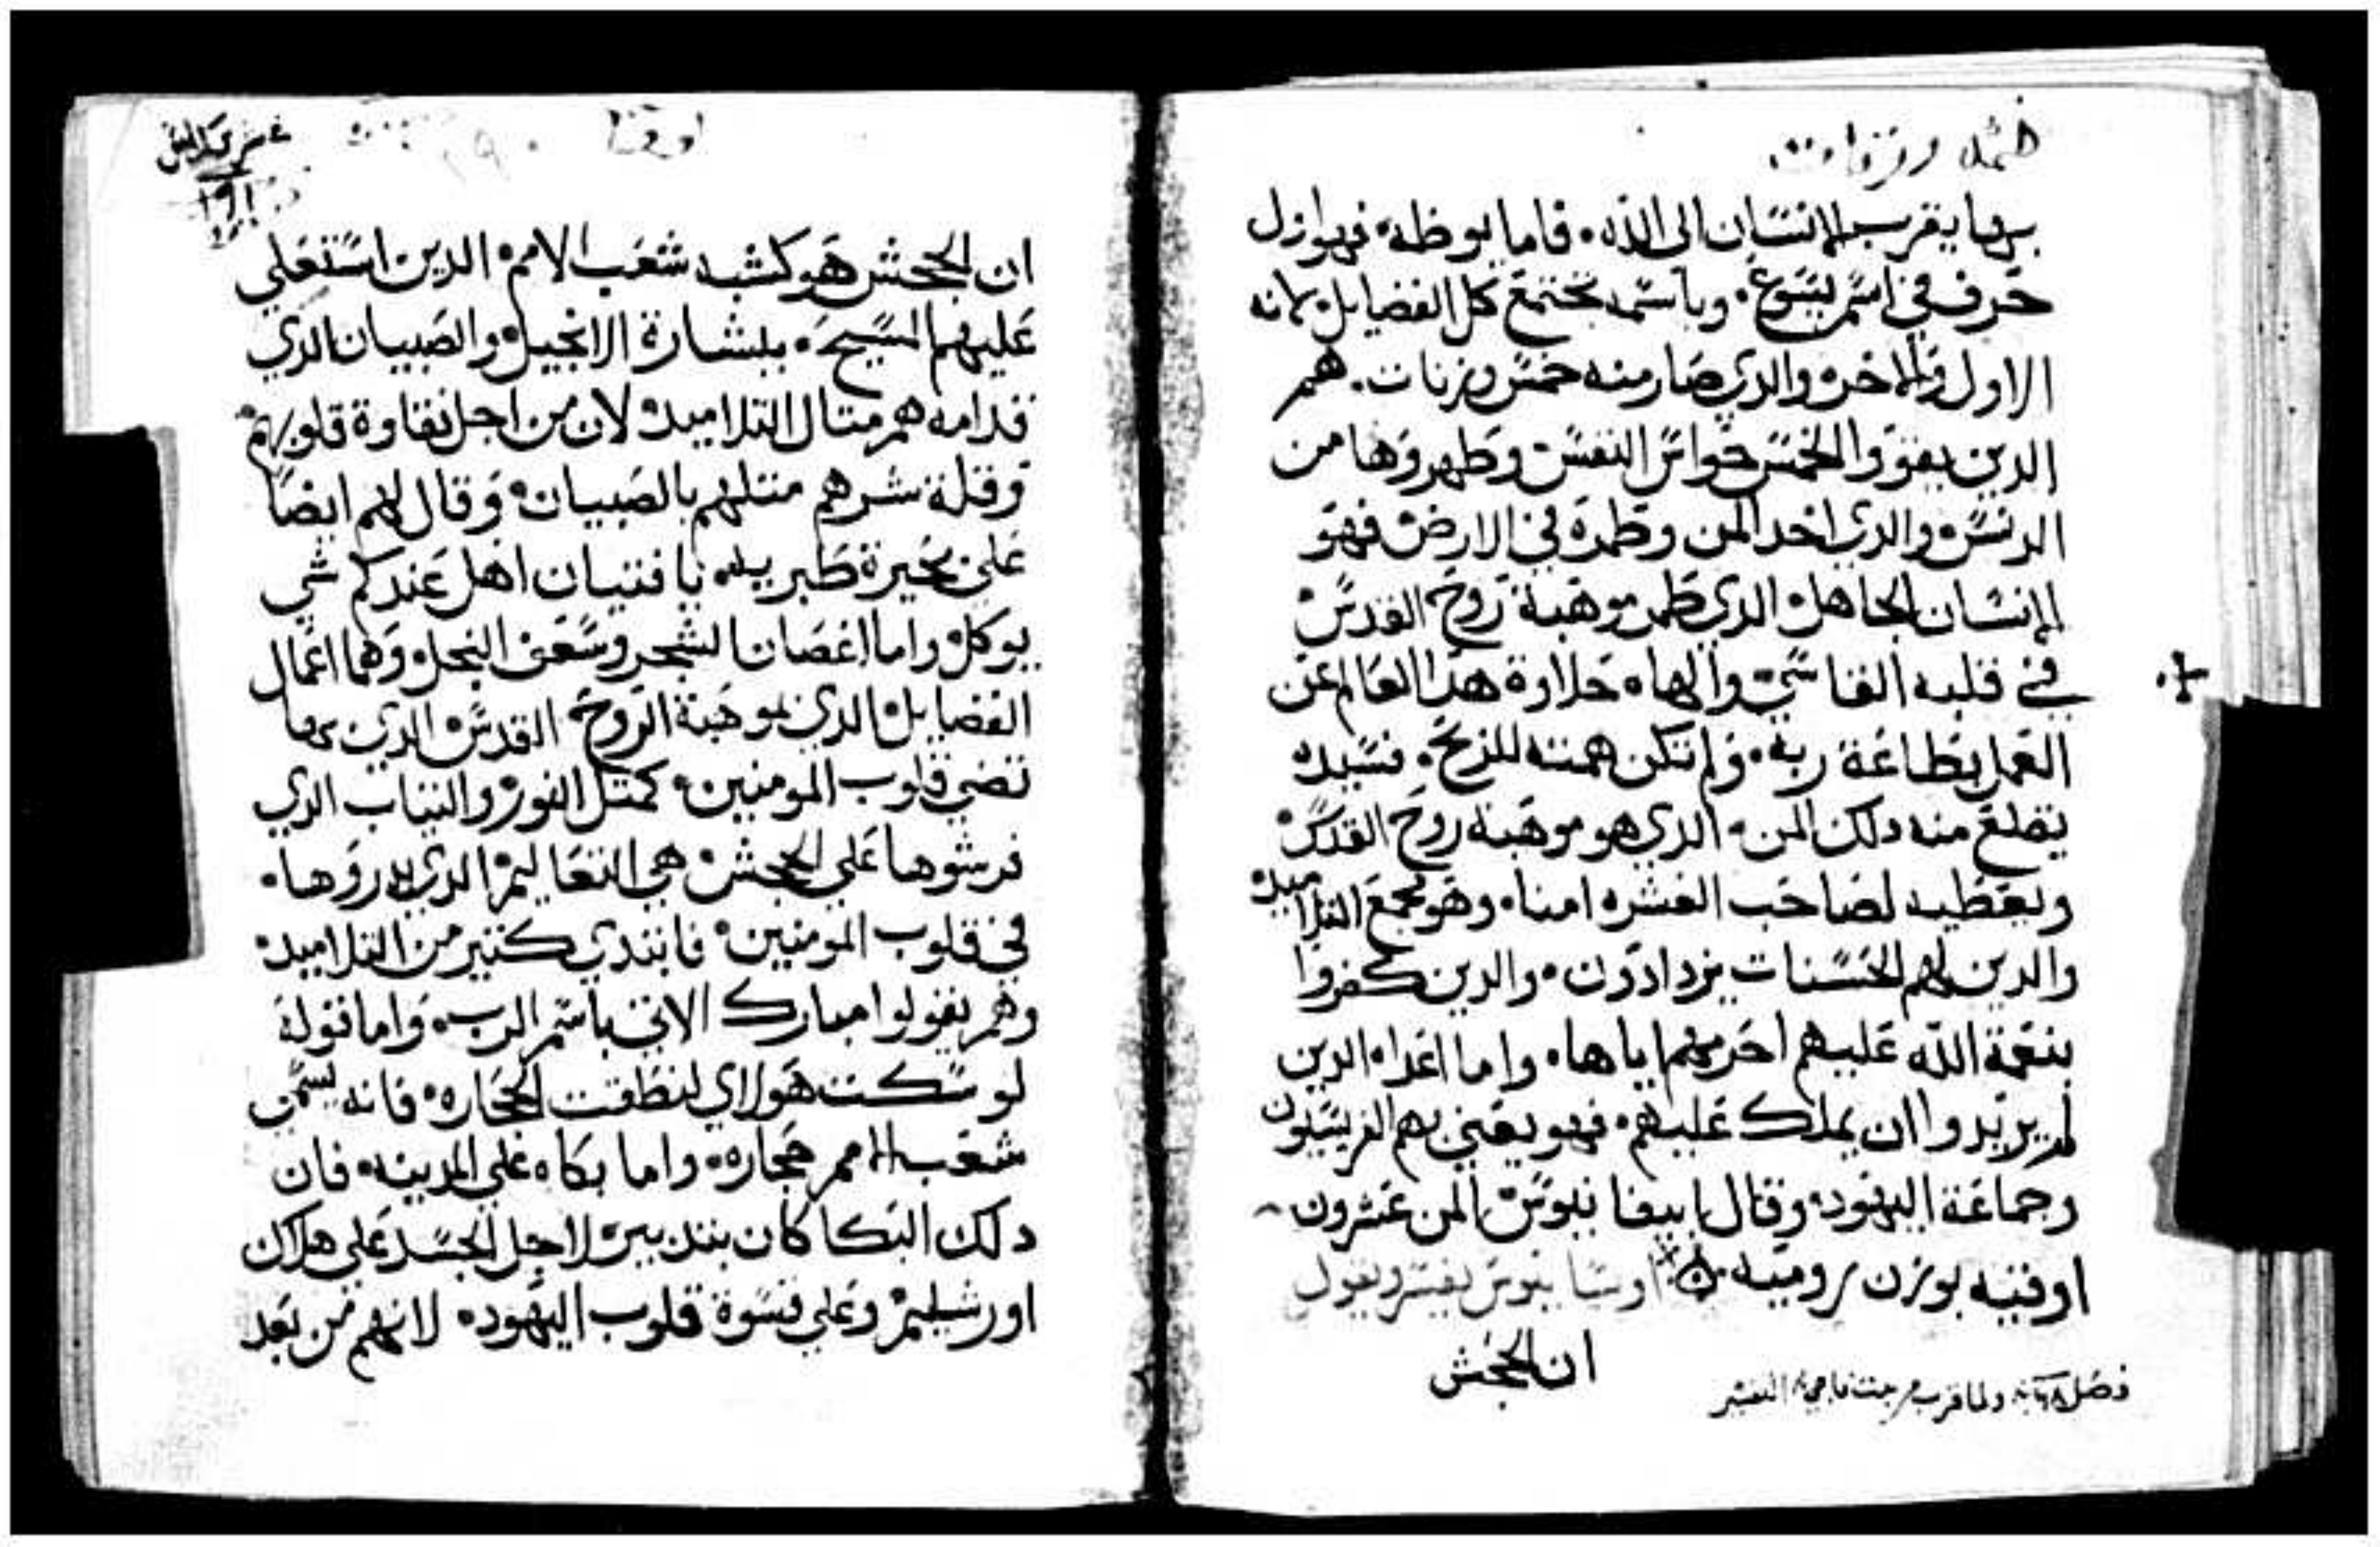 خمسه وزنات
بها يقرب الانسان الى الله۰ فاما يوظه۰ فهو اول
حرف في اسم يسوع۰ وباسمه تجتمع كل الفضايل۰ لانه
الاول والاخر۰ والدي صار منه خمس وزنات۰ هم
الدين ينقوا الخمس حواس النفس وطهروها من
الدنس۰ والدي اخد المن وطمره في الارض فهو
الانسان الجاهل۰ الدي طمر موهبة روح القدس
في قلبه القاسي والهاه حلاوة هدا العالم عن
العمل بطاعة ربه۰ ولم تكن همته للربح۰ فسيده
يقلع منه دلك المن۰ الدي هو موهبة روح القدس
ويعطيه لصاحب العشره امنا۰ وهو مجمع التلاميد
والدين لهم الحسنات يزدادون۰ والدين كفروا
بنعمة الله عليهم احرمهم اياها۰ واما اعداه الدين
لم يريدوا ان يملك عليهم۰ فهو يعني بهم الفريسيون
وجماعة اليهود۰ وقال ابيفانيوس المن عشرون
اوقيه بوزن روميه۰ اوسابيوس يفسر ويقول
ان الجحش
فصل ولما قرب من بيت فاجي التفسير
لوقا
ان الجحش هو كشبه شعب الامم۰ الدين استعلي
عليهم المسيح۰ ببشارة الانجيل۰ والصبيان الدي
قدامه هم متال التلاميد۰ لان من اجل نقاوة قلوبهم
وقلة شرهم متلهم بالصبيان۰ وقال لهم ايضا
على بحيرة طبريه۰ يا فتيان اهل عندكم شي
يوكل۰ واما اغصان الشجر وسعف النخل۰ وهما اعمال
الفضايل۰ الدي بموهبة الروح القدس الدي بها
تضي قلوب المومنين۰ كمتل النور۰ والتياب الدي
فرشوها علي الجحش۰ هي التعاليم الدي بدروها۰
في قلوب المومنين۰ فابتدي كتير من التلاميد۰
وهم يقولوا مبارك الاتي باسم الرب۰ واما قوله
لو سكت هولاي لنطقت الحجاره۰ فانه يسمى
شعب الامم حجاره۰ واما بكاه علي المدينه۰ فان
دلك البكا كان بتدبير۰ لاجل الجسد علي هلاك
اورشليم۰ وعلي قسوة قلوب اليهود۰ لانهم من بعد